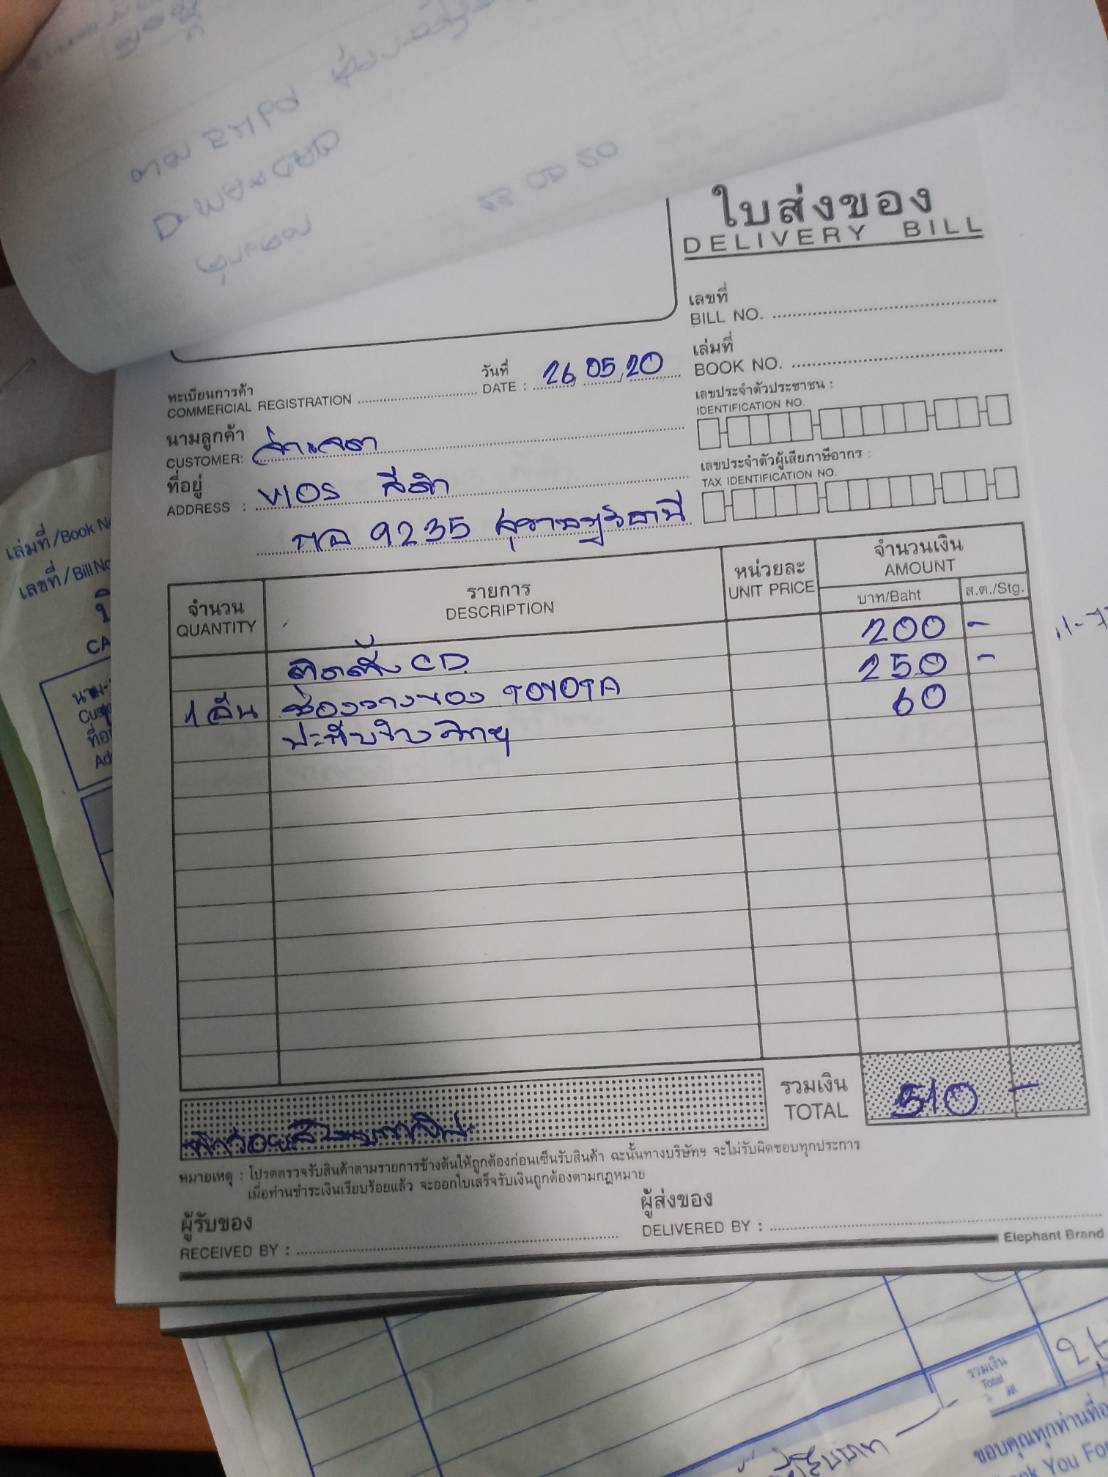 ใบส่งของ
DELIVERY BILL
เลขที่
BILL NO.
เล่มที่
BOOK NO.
ทะเบียนการค้า
COMMERCIAL REGISTRATION
วันที่
DATE : 26, 05, 20
เลขประจำตัวประชาชน :
IDENTIFICATION NO.
นามลูกค้า
CUSTOMER:
ที่อยู่
ADDRESS : VIOS สีดำ
กอ 9235 สุราษฎร์ธานี
เลขประจำตัวผู้เสียภาษีอากร :
TAX IDENTIFICATION NO.
จำนวน
QUANTITY
รายการ
DESCRIPTION
หน่วยละ
UNIT PRICE
จำนวนเงิน
AMOUNT
บาท/Baht
ส.ต./Stg.
ติดตั้ง CD 200 -
1 อัน ช่องวางของ TOYOTA 250 -
ปะทับใบวิทยุ 60
รวมเงิน
TOTAL
510 -
ห้าร้อยสิบบาทถ้วน
หมายเหตุ : โปรดตรวจรับสินค้าตามรายการข้างต้นให้ถูกต้องก่อนเซ็นรับสินค้า ฉะนั้นทางบริษัทฯ จะไม่รับผิดชอบทุกประการ
เมื่อท่านชำระเงินเรียบร้อยแล้ว จะออกใบเสร็จรับเงินถูกต้องตามกฎหมาย
ผู้รับของ
RECEIVED BY :
ผู้ส่งของ
DELIVERED BY :
Elephant Brand
เล่มที่/Book N
เลขที่/Bill No
CA
รวมเงิน
Total
ขอบคุณทุกท่านที่อ